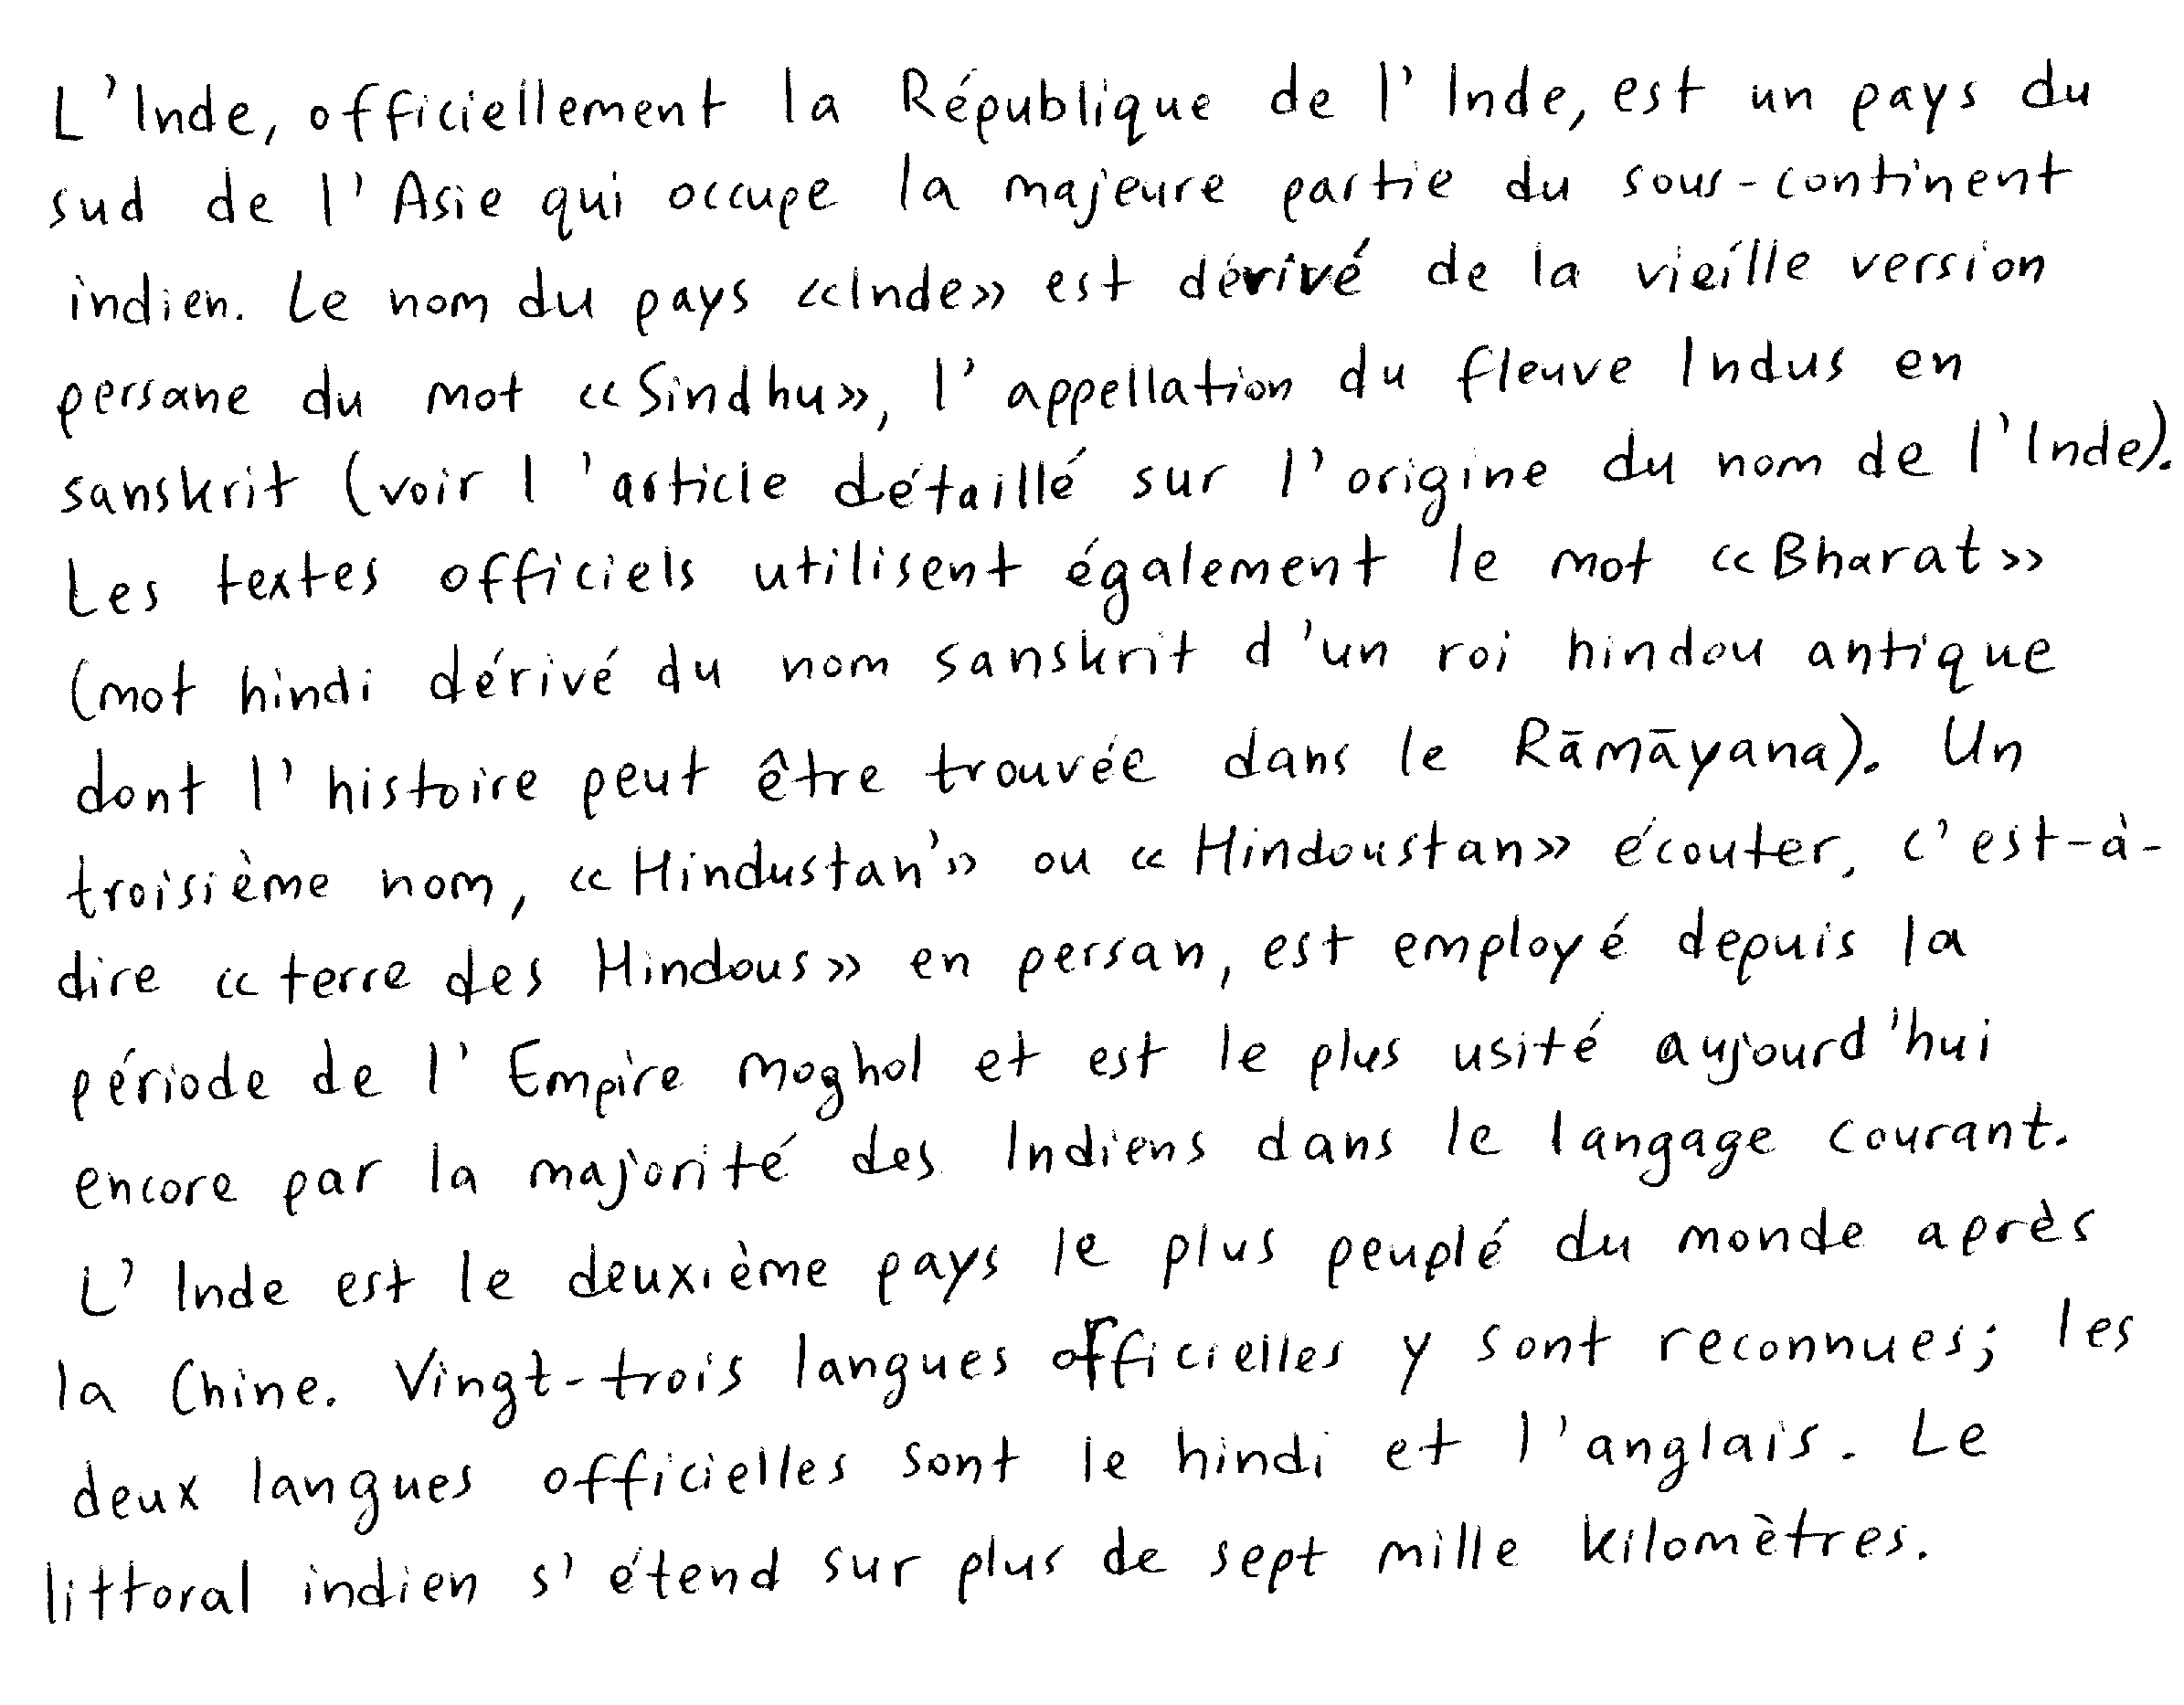 L'Inde, officiellement la République de l'Inde, est un pays du
sud de l'Asie qui occupe la majeure partie du sous-continent
indien. Le nom du pays «Inde» est dérivé de la vieille version
persane du mot «Sindhu», l'appellation du fleuve Indus en
sanskrit (voir l'article détaillé sur l'origine du nom de l'Inde).
Les textes officiels utilisent également le mot «Bharat»
(mot hindi dérivé du nom sanskrit d'un roi hindou antique
dont l'histoire peut être trouvée dans le Rāmāyana). Un
troisième nom, «Hindustan'» ou «Hindoustan» écouter, c'est-à-
dire «terre des Hindous» en persan, est employé depuis la
période de l'Empire moghol et est le plus usité aujourd'hui
encore par la majorité des Indiens dans le langage courant.
L'Inde est le deuxième pays le plus peuplé du monde après
la Chine. Vingt-trois langues officielles y sont reconnues; les
deux langues officielles sont le hindi et l'anglais. Le
littoral indien s'étend sur plus de sept mille kilomètres.